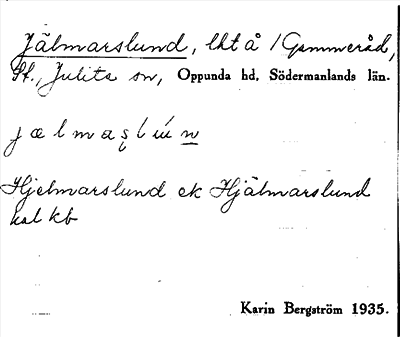 Jälmarslund, lht å 1 Gammeråd,
St., Julita sn, Oppunda hd, Södermanlands län.
Hjelmarslund ek Hjälmarslund
kal kb
Karin Bergström 1935.